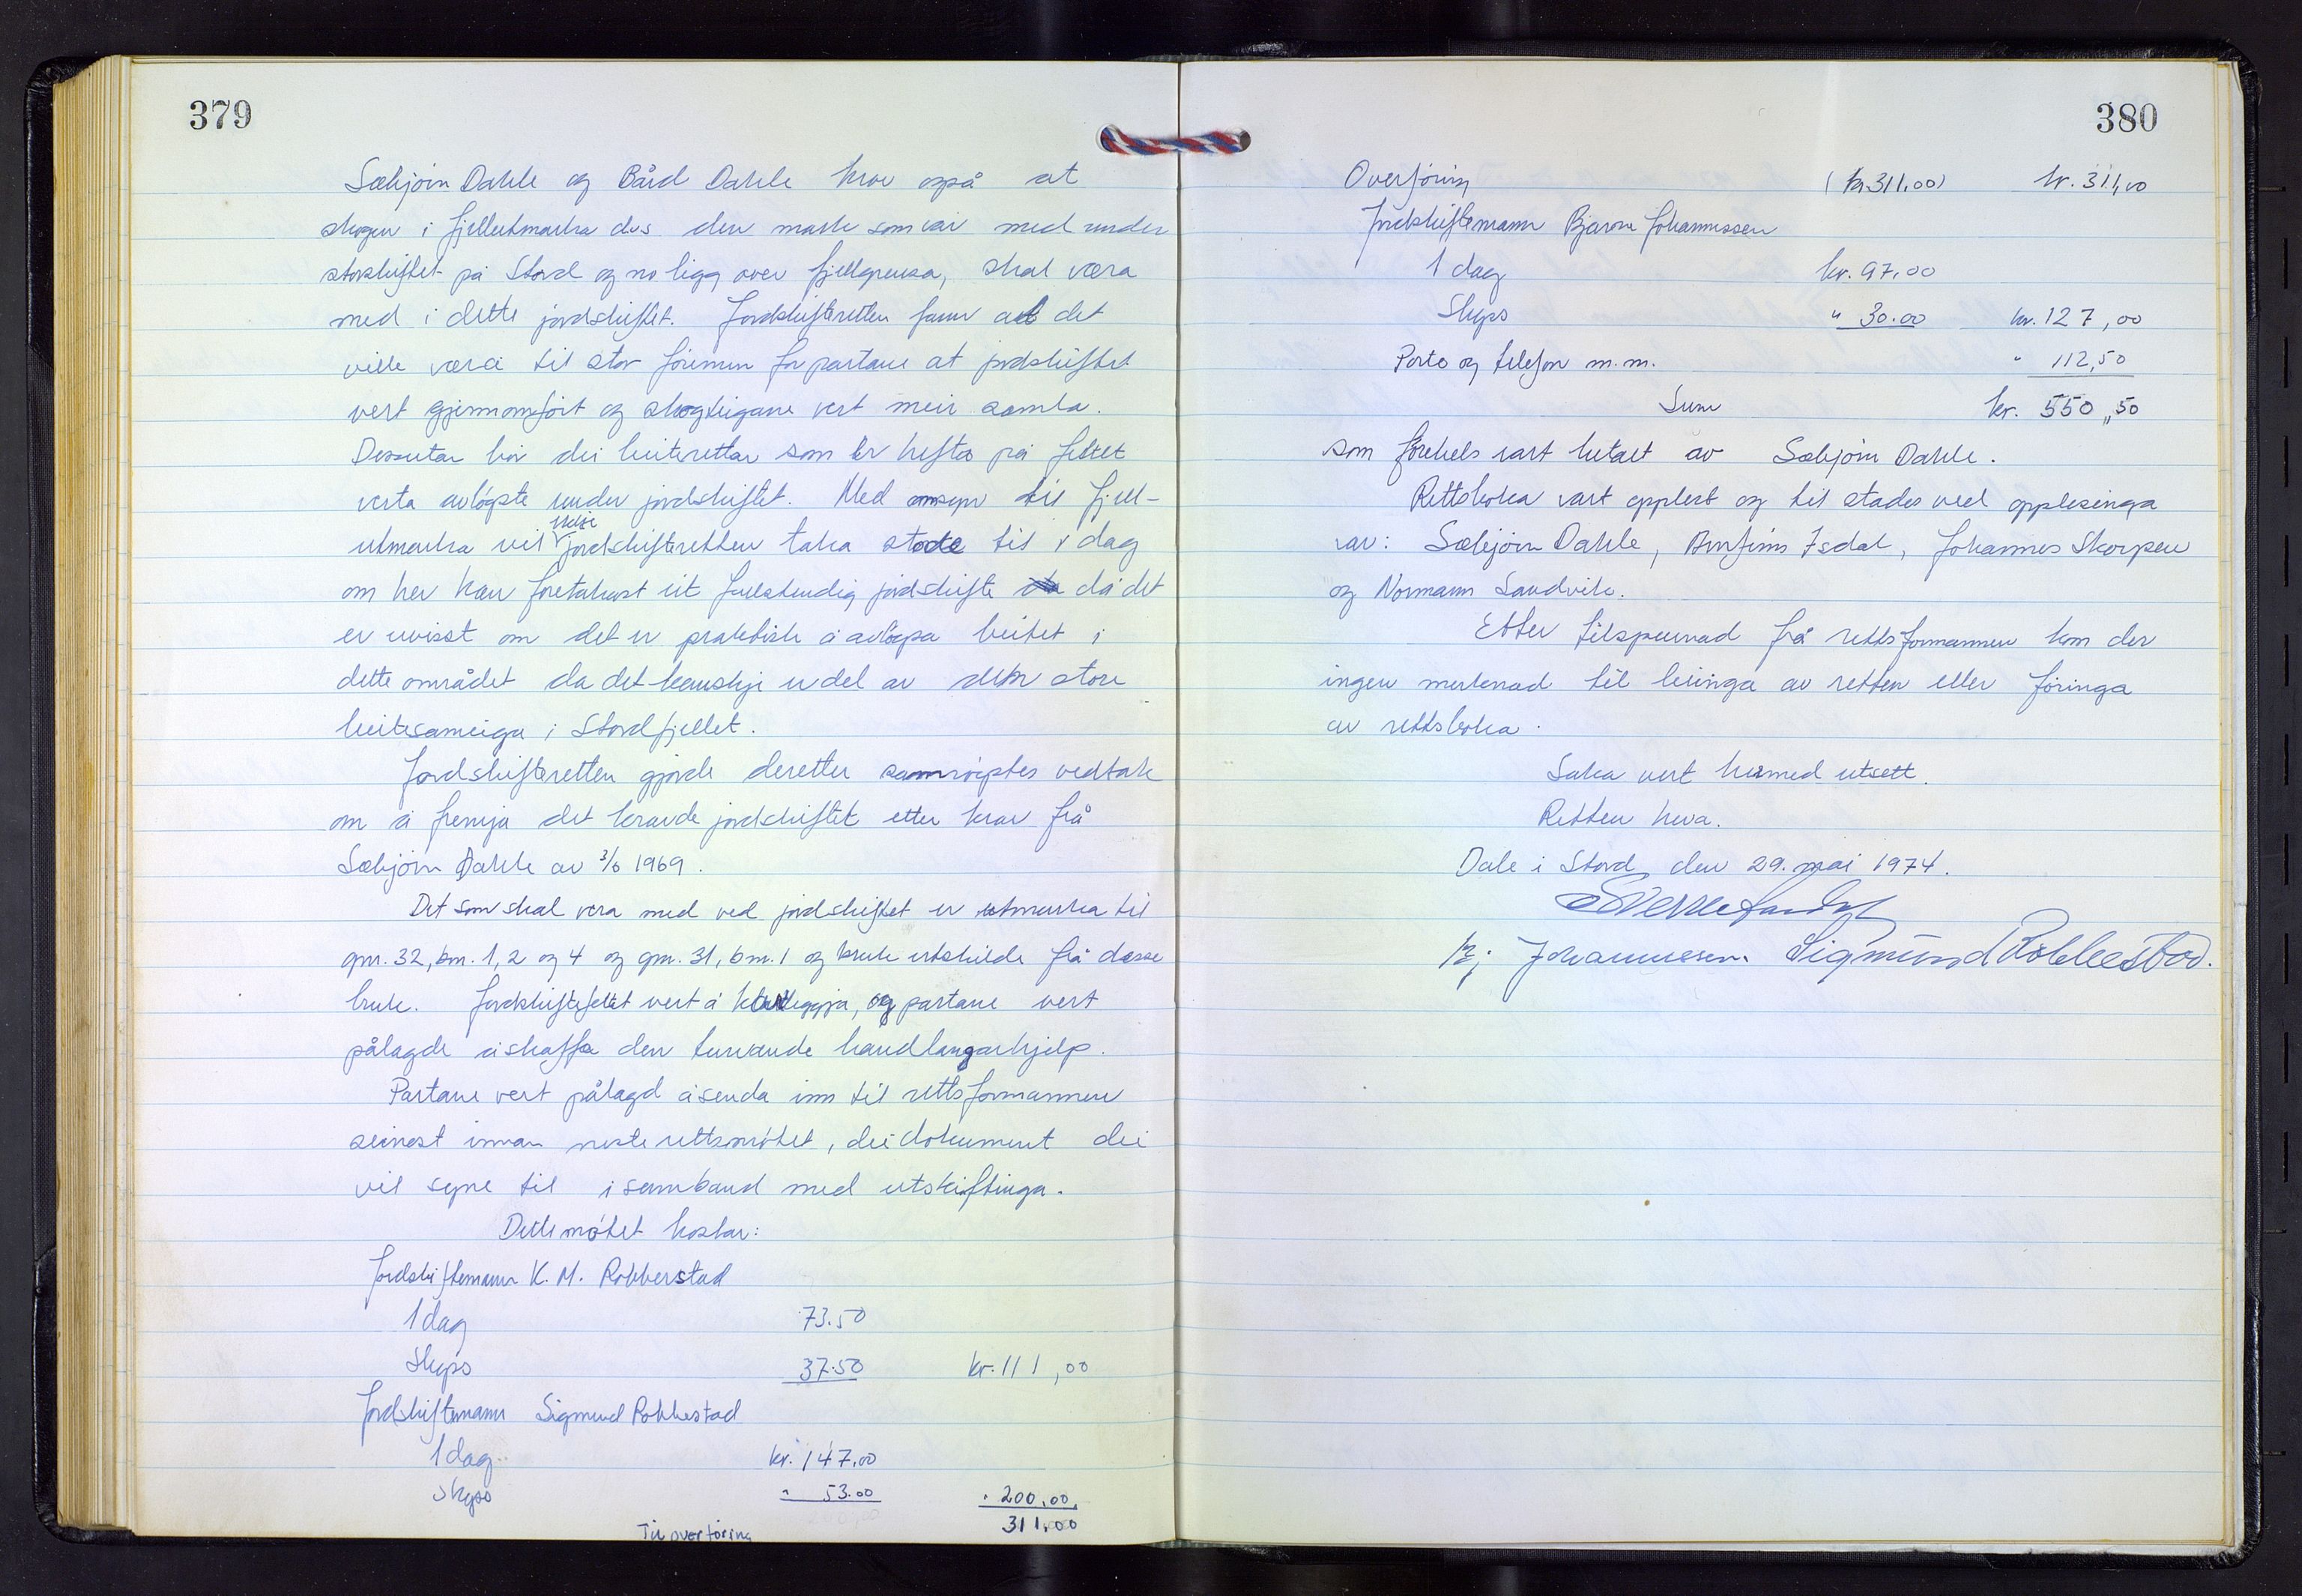 379
Sæbjørn Dahle og Bård Dahle krov også at
skogen i fjellutmarka dvs den mark som var med under
storskiftet på Stord og no ligg over fjellgrensa, skal væra
med i dette jordskiftet. Jordskifteretten fann at det
ville væra til stor föremun for partane at jordskiftet
vert gjennomført og skogteigane vert meir samla.
Dessutan bør dei beiterettar som er hefta på feltet
verta avløyste under jordskiftet. Med omsyn til fjell-
utmarka vil ikkje jordskifteretten taka stode til i dag
om her kan foretakast eit fullstendig jordskifte då det
er uvisst om det er praktisk å avløysa beitet i
dette området da det kanskje er del av den store
beitesameiga i Stordfjellet.
Jordskifteretten gjorde deretter samrøystes vedtak
om å fremja det kravde jordskiftet etter krav frå
Sæbjørn Dahle av 3/6 1969.
Det som skal vera med ved jordskiftet er utmarka til
gnr. 32, bnr. 1, 2 og 4 og gnr. 31, bnr. 1 og bruk utskilde frå desse
bruk. Jordskiftefeltet vert å kartleggja, og partane vert
pålagde å skaffa den turvande handlangarhjelp.
Partane vert pålagd å senda inn til rettsformannen
seinast innan neste rettsmøtet, dei dokument dei
vil syne til i samband med utskiftinga.
Dette møtet kostar:
Jordskiftemann K. M. Robberstad
1 dag 73.50
Skyss 37.50 kr. 111,00
Jordskiftemann Sigmund Robbestad
1 dag kr. 147.00
Skyss " 53.00 " 200,00
Til overføring 311,00
380
Overføring (kr. 311,00) kr. 311,00
Jordskiftemann Bjarne Johannessen
1 dag kr. 97,00
Skyss " 30.00 kr. 127,00
Porto og telefon m.m. " 112,50
Sum kr. 550,50
som førebels vart betalt av Sæbjørn Dahle.
Rettsboka vart opplest og til stades ved opplesinga
var: Sæbjørn Dahle, Arnfinn Isdal, Johannes Skorpen
og Normann Sandvik.
Etter tilspurnad frå rettsformannen kom der
ingen merknad til leiinga av retten eller føringa
av rettsboka.
Saka vert hermed utsett.
Retten heva.
Dale i Stord, den 29. mai 1974.
Bj Johannessen. Sigmund Robbestad.